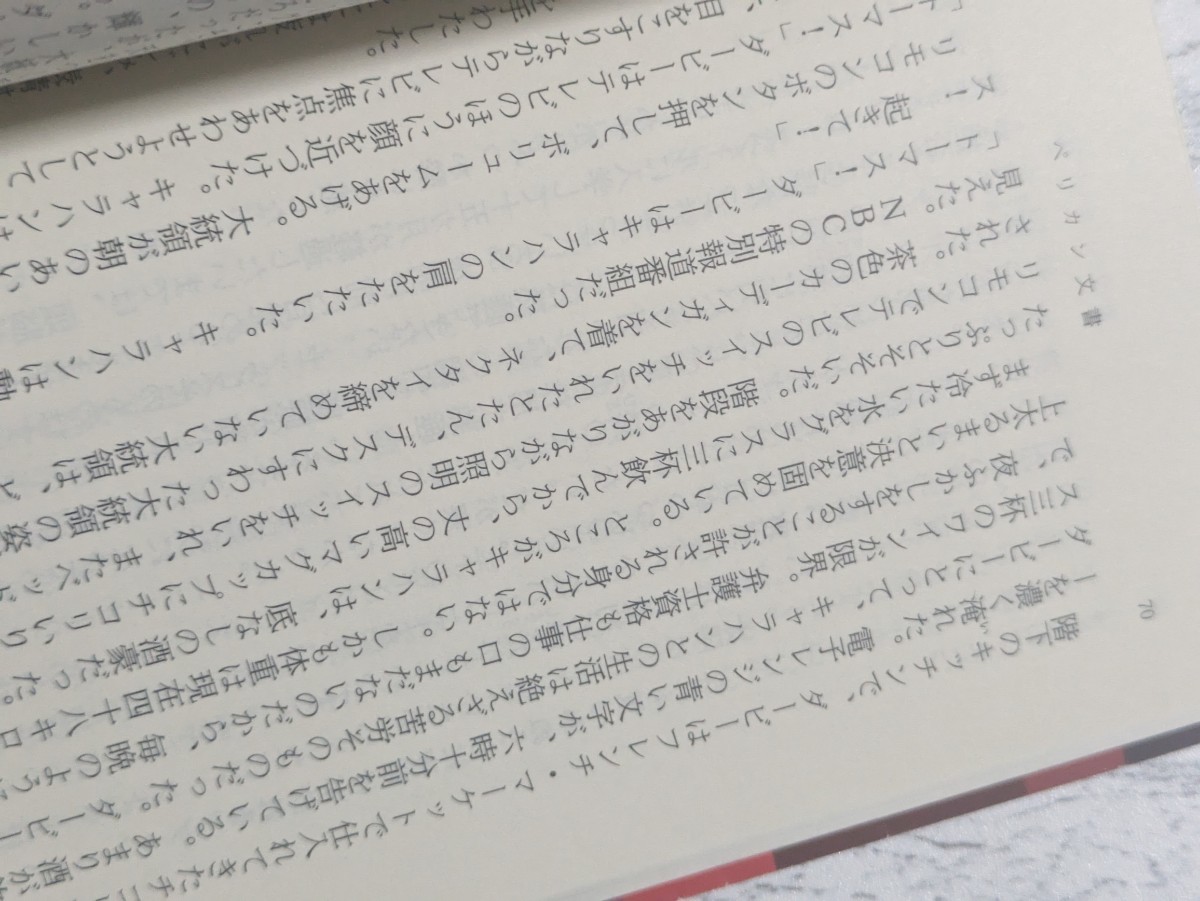 70
ペリカン文書
階下のキッチンで、ダービーはフレンチ・マーケットで仕入れてきたチコ
ーを濃く淹れた。電子レンジの青い文字が、六時十分前を告げている。あまり酒が
ダービーにとって、キャラハンとの生活は絶えざる苦労そのものだった。ダービー
ス三杯のワインが限界。弁護士資格も仕事の口もまだないのだから、毎晩のように
で、夜ふかしをすることが許される身分ではない。しかも体重は現在四十八キロ
上太るまいと決意を固めている。ところがキャラハンは、底なしの酒豪だった。
まず冷たい水をグラスに三杯飲んでから、丈の高いマグカップにチコリいり
たっぷりとそそいだ。階段をあがりながら照明のスイッチをいれ、またベッド
リモコンでテレビのスイッチをいれたとたん、デスクにすわった大統領の姿
された。茶色のカーディガンを着て、ネクタイを締めていない大統領は、ど
見えた。NBCの特別報道番組だった。
「トーマス!」ダービーはキャラハンの肩をたたいた。キャラハンは動
ス! 起きて!」
リモコンのボタンを押して、ボリュームをあげる。大統領が朝のあい
「トーマス!」ダービーはテレビのほうに顔を近づけた。キャラハンは
、目をこすりながらテレビに焦点をあわせようとして
を手わたした。